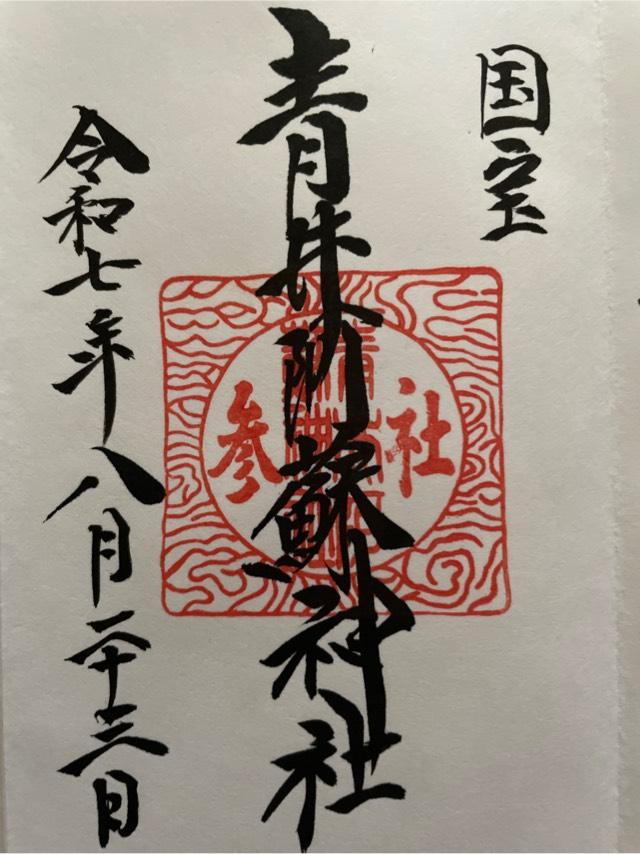 国宝
青井阿蘇神社
参社
令和七年八月二十三日